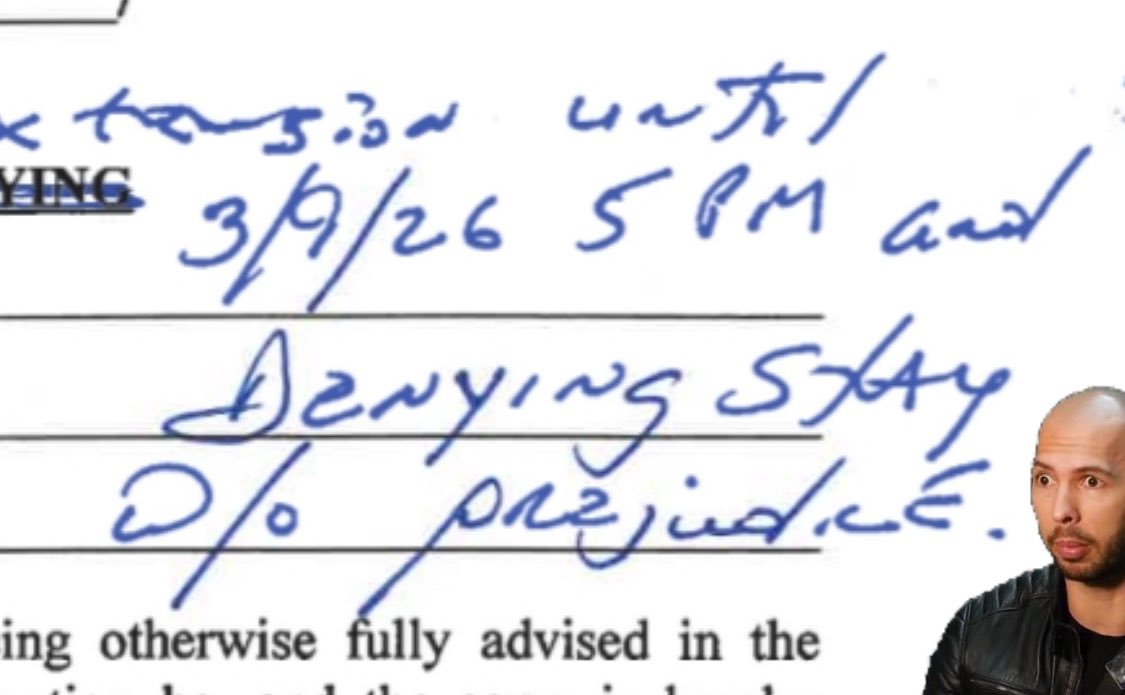 xtension until
YING
3/9/26 5 PM and
Denying Stay
w/o prejudice.
ing otherwise fully advised in the